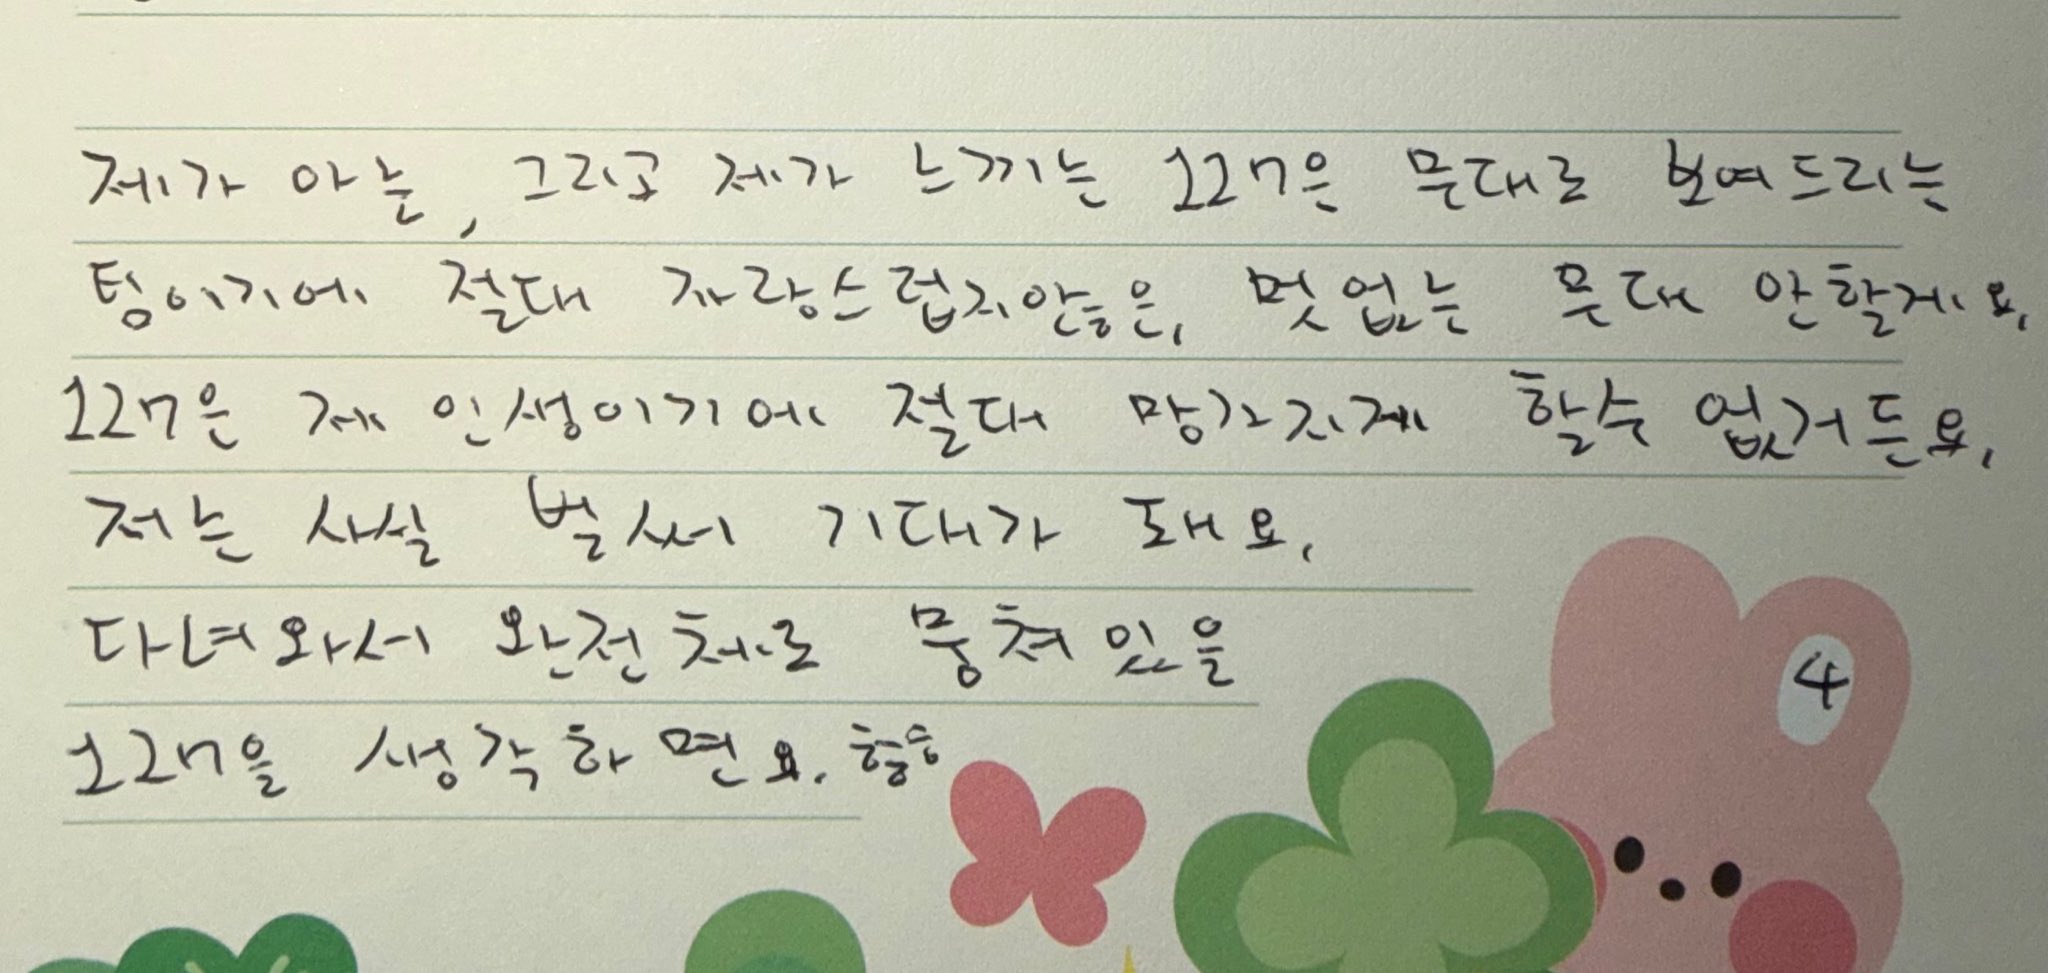 제가 아는, 그리고 제가 느끼는 127은 무대로 보여드리는
팀이기에 절대 자랑스럽지않은, 멋없는 무대 안할게요.
127은 제 인생이기에 절대 망가지게 할수 없거든요.
저는 사실 벌써 기대가 돼요.
다녀와서 완전체로 뭉쳐있을
127을 생각하면요.
4